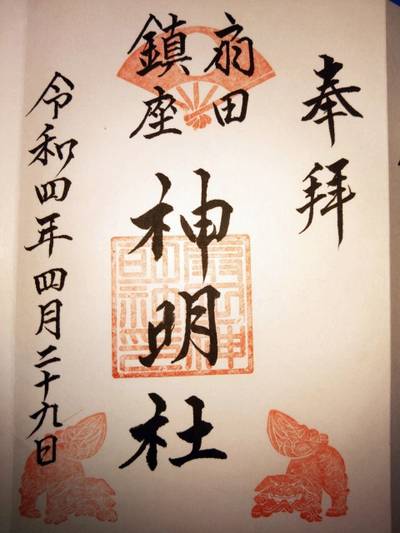 奉拝
扇田
鎮座
神明社
令和四年四月二十九日